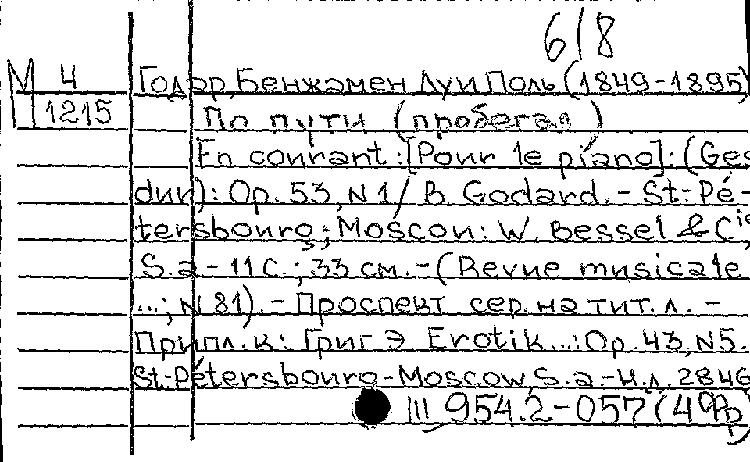 6/8
М 4 Годар, Бенжамен Луи Поль (1849-1895)
П 1215 По пути (пробегая)
En courant: [Pour le piano]: (Ges
dur): Op. 53, N 1 / B. Godard. - St.-Pé-
tersbourg; Moscou: W. Bessel & Cie,
S.a. - 11 с.; 33 см. - (Revue musicale
...; N 81). - Проспект сер. на тит. л. -
Припл. к: Григ Э. Erotik...: Op. 43, N5.
St.-Pétersbourg-Moscow, S.a. - Н.д. 2846
III 954.2-057